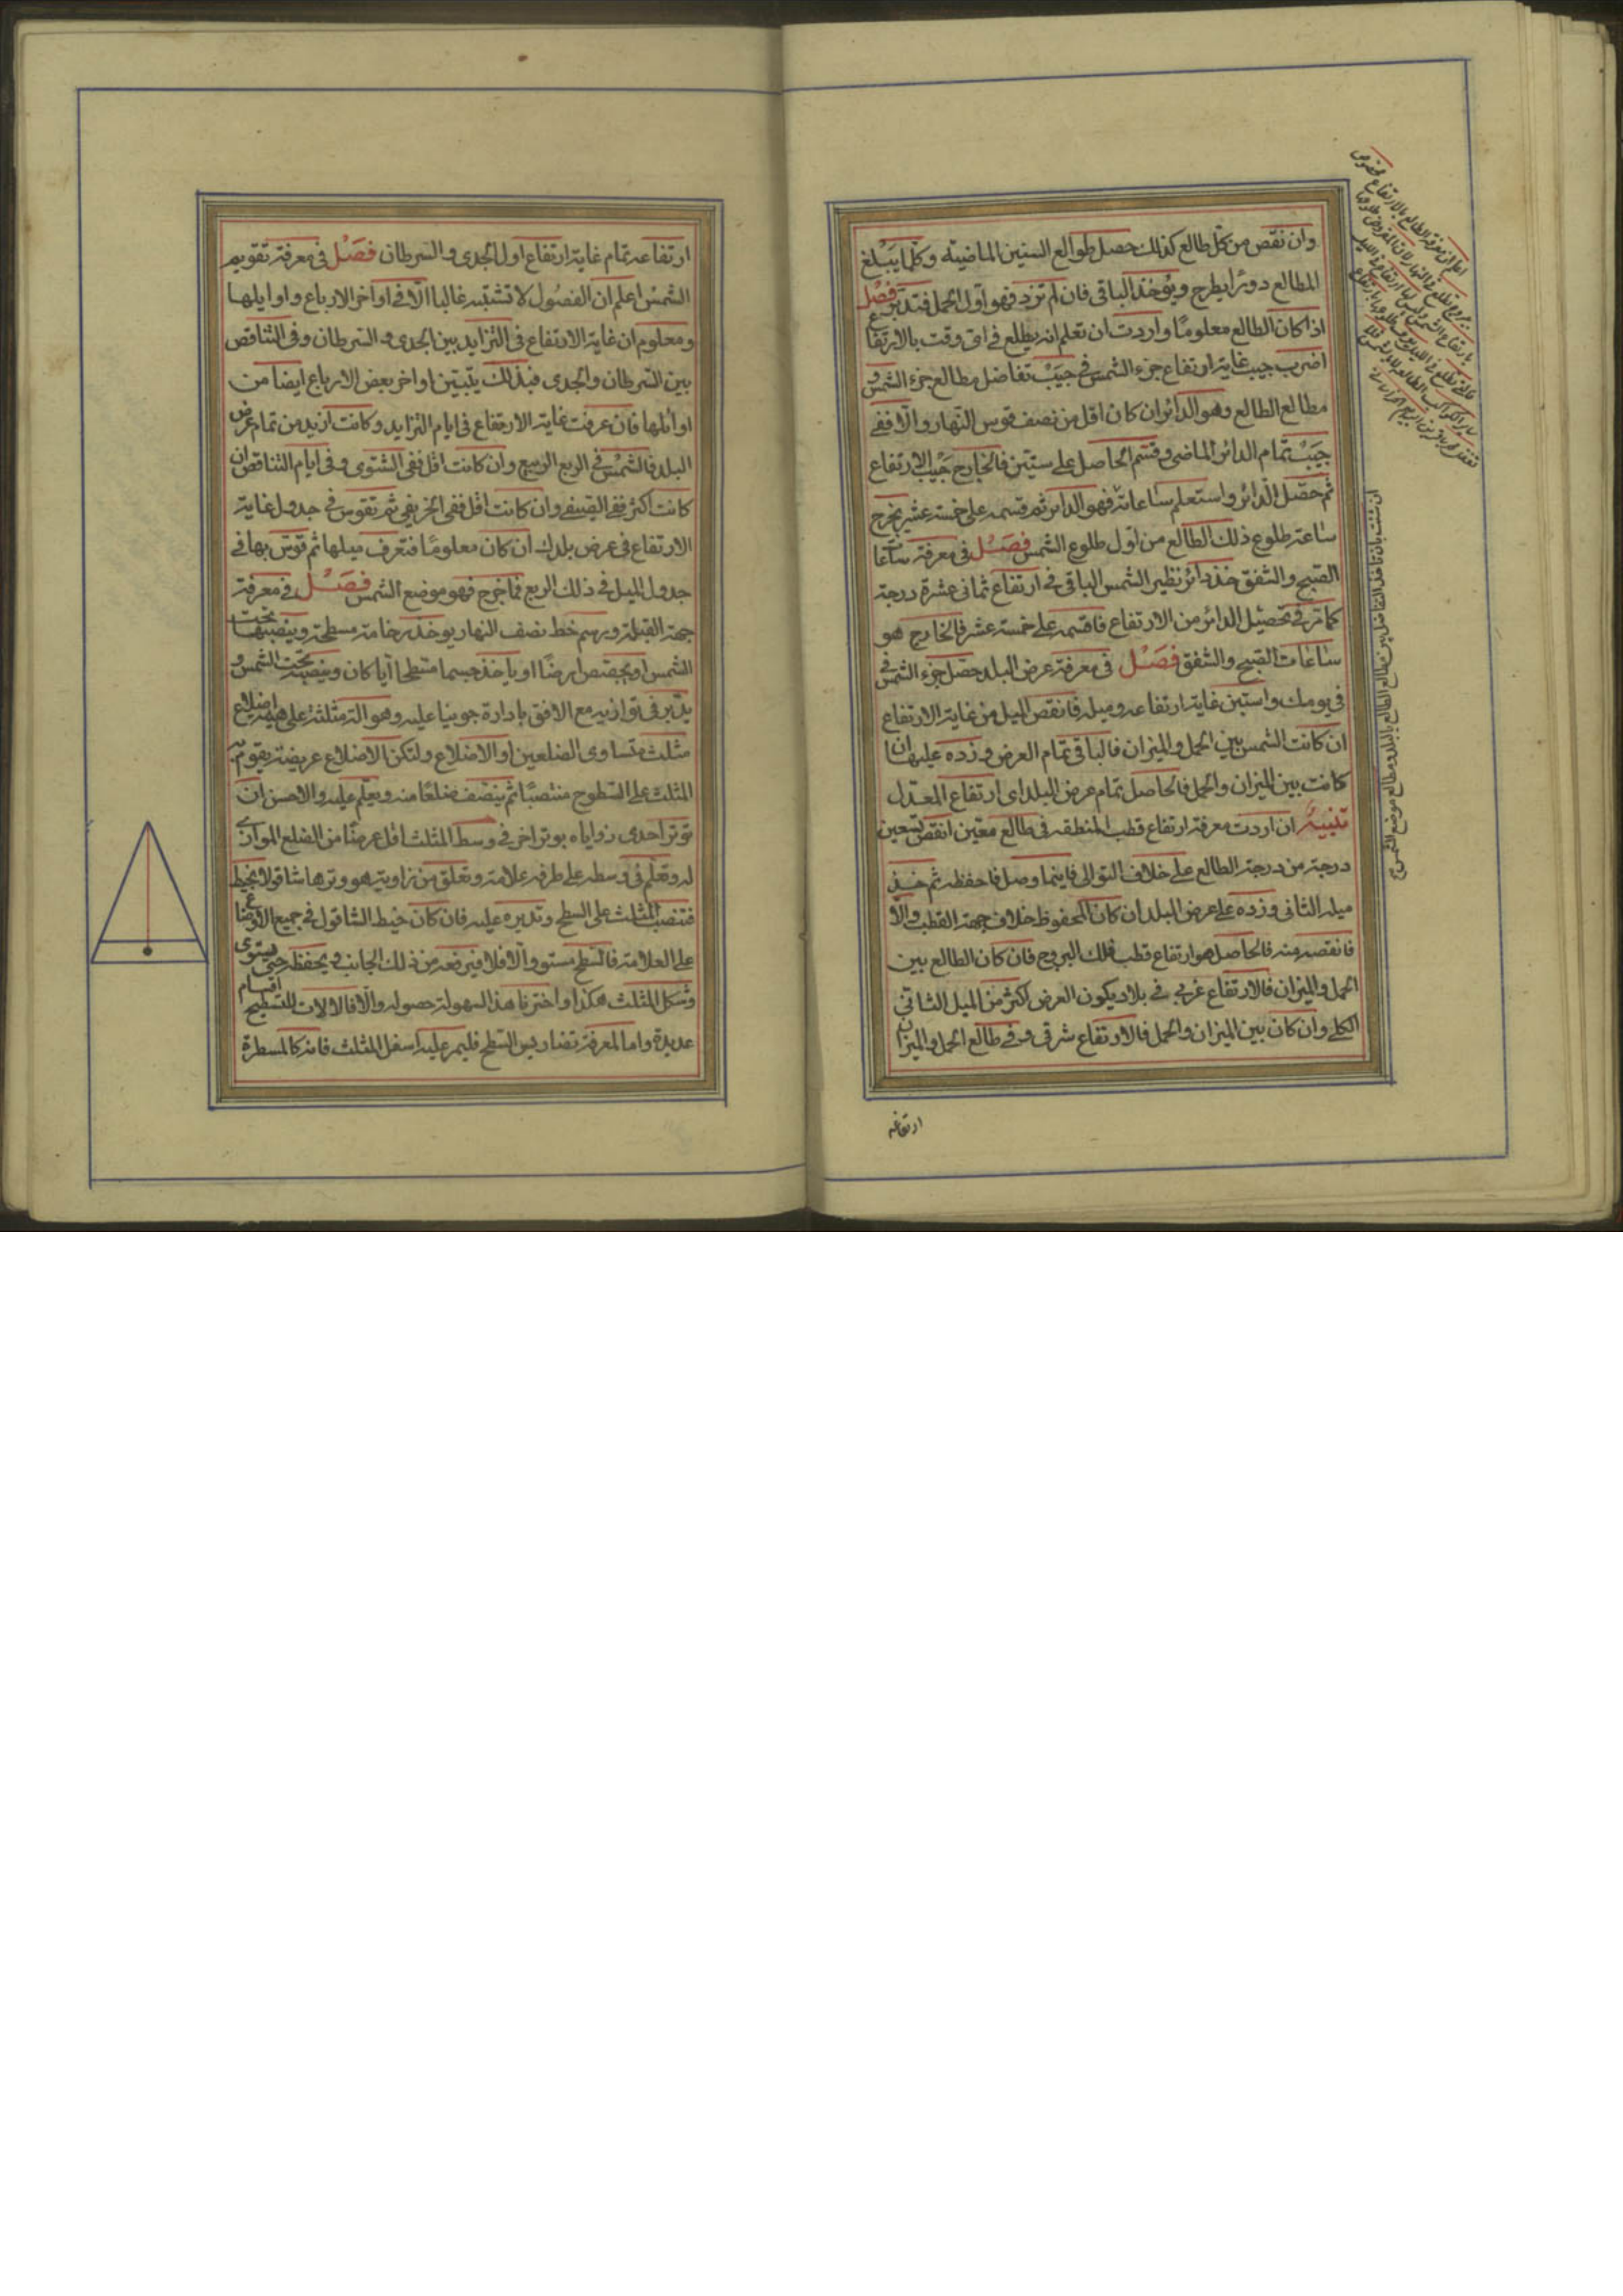 وان نقص من كل طالع كذلك حصل طوالع السنين الماضية وكلما يبلغ
المطالع دورًا يطرح ويؤخذ الباقى فان لم تزد فهو اول الحمل فتدبر فصل
اذا كان الطالع معلومًا واردت ان تعلم انه يطلع فى اى وقت بالارتفاع
اضرب جيب غاية ارتفاع جزء الشمس فى جيب تفاضل مطالع جزء الشمس و
مطالع الطالع وهو الدائر ان كان اقل من نصف قوس النهار والا ففى
جيب تمام الدائر الماضى وقسم الحاصل على ستين فالخارج جيب الارتفاع
ثم حصل الدائر واستعلم ساعاته فهو الدائر ثم قسمه على خمسة عشر يخرج
ساعة طلوع ذلك الطالع من اول طلوع الشمس فصل فى معرفة ساعات
الصبح والشفق خذ دائر نظير الشمس الباقى فى ارتفاع ثمانى عشرة درجة
كما مر فى تحصيل الدائر من الارتفاع فاقسمه على خمسة عشر فالخارج هو
ساعات الصبح والشفق فصل فى معرفة عرض البلد حصل جزء الشمس فى
فى يومك واستبن غاية ارتفاعه وميله فانقص الميل من غاية الارتفاع
ان كانت الشمس بين الحمل والميزان فالباقى تمام العرض وزده عليها ان
كانت بين الميزان والحمل فالحاصل تمام عرض البلد اى ارتفاع المعدل
تنبيه ان اردت معرفة ارتفاع قطب المنطقه فى طالع معين انقص تسعين
درجة من درجة الطالع على خلاف التوالى فاينما وصل فاحفظه ثم خذ
ميله الثانى وزده على عرض البلد ان كان المحفوظ خلاف جهة القطب والا
فانقصه منه فالحاصل هو ارتفاع قطب فلك البروج فان كان الطالع بين
الحمل والميزان فالارتفاع غربى فى بلاد يكون العرض اكثر من الميل الثانى
الكلى وان كان بين الميزان والحمل فالارتفاع شرقى وفى طالع الحمل والميزان
ارتفاعه
ان شئت بان تاخذ التفاضل بين مطالع الطالع بالبلد ومطالع موضع الشمس
ارتفاعه تمام غاية ارتفاع اول الجدى والسرطان فصل فى معرفة تقويم
الشمس اعلم ان الفصول لا تشتبه غالبا الا فى اواخر الارباع واوايلها
ومعلوم ان غاية الارتفاع فى التزايد بين الجدى والسرطان وفى التناقص
بين السرطان والجدى فبذلك يتبين اواخر بعض الارباع ايضا من
اوائلها فان عرفت غاية الارتفاع فى ايام التزايد وكانت ازيد من تمام عرض
البلد فالشمس فى الربع الربيعى وان كانت اقل ففى الشتوى وفى ايام التناقص ان
كانت اكثر ففى الصيفى وان كانت اقل ففى الخريفى ثم تقوس فى جدول غاية
الارتفاع فى عرض بلدك ان كان معلومًا فتعرف ميلها ثم قوس بها فى
جدول الميل فى ذلك الربع فما خرج فهو موضع الشمس فصل فى معرفة
جهة القبلة ورسم خط نصف النهار يوخذ رخامة مسطحة وينصبها تحت
الشمس او يجصص ارضًا او ياخذ جسما مسطحا ايا كان وينصبه تحت الشمس و
يدبر فى توازيه مع الافق بادارة جونيا عليه وهو الة مثلثة على هيئة اضلاع
مثلث متساوى الضلعين او الاضلاع ولتكن الاضلاع عريضة يقوم
المثلث على السطوح منتصبًا ثم ينصف ضلعًا منه ويعلم عليه والاحسن ان
توتر احدى زواياه بوتر اخر فى وسط المثلث اقل عرضًا من الضلع الموازى
له وتعلم فى وسطه على طرفه علامة وتعلق من زاوية هو وترها شاقولا بخيط
فتنصب المثلث على السطح وتديره عليه فان كان خيط الشاقول فى جميع الاوضاع
على العلامة فالسطح مستو والا فلا فيرفعه من ذلك الجانب ويخفظه حتى يستوى
وشكل المثلث هكذا واخترنا هذا لسهولة حصوله والا فالالات للتسطيح اقسام
عديدة واما لمعرفة تضاريس السطح فليمر عليه اسفل المثلث فانه كالمسطرة